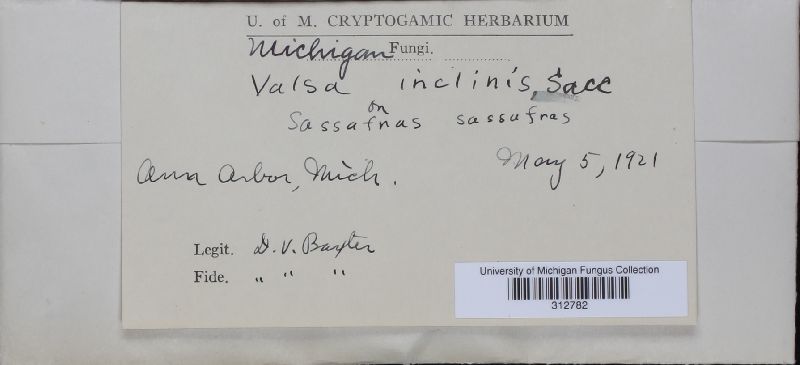 U. of M. CRYPTOGAMIC HERBARIUM
Michigan Fungi.
Valsa inclinis, Sacc
on
Sassafras sassafras
Ann Arbor, Mich. May 5, 1921
Legit. D. V. Baxter
Fide. " " "
University of Michigan Fungus Collection
312782